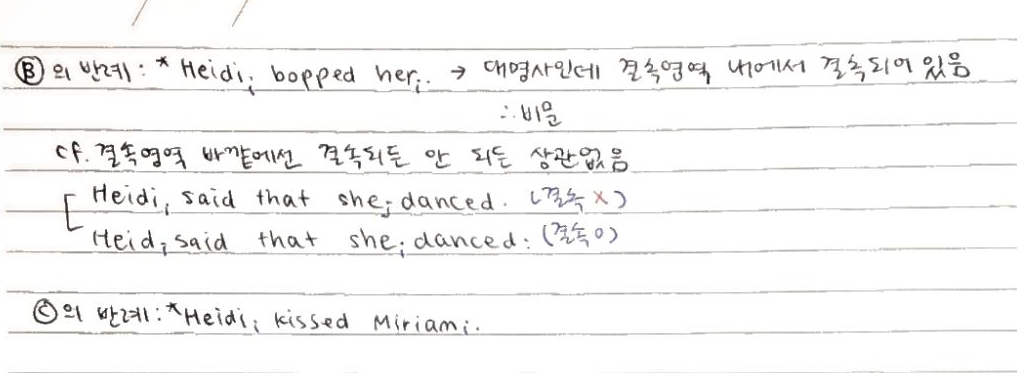 Ⓑ의 반례 : * Heidiᵢ bopped herᵢ. → 대명사인데 결속영역 내에서 결속되어 있음
∴ 비문
cf. 결속영역 바깥에선 결속되든 안 되든 상관없음
Heidiᵢ said that sheⱼ danced. (결속 X)
Heidᵢ said that sheᵢ danced. (결속 O)
Ⓒ의 반례 : *Heidiᵢ kissed Miriamᵢ.